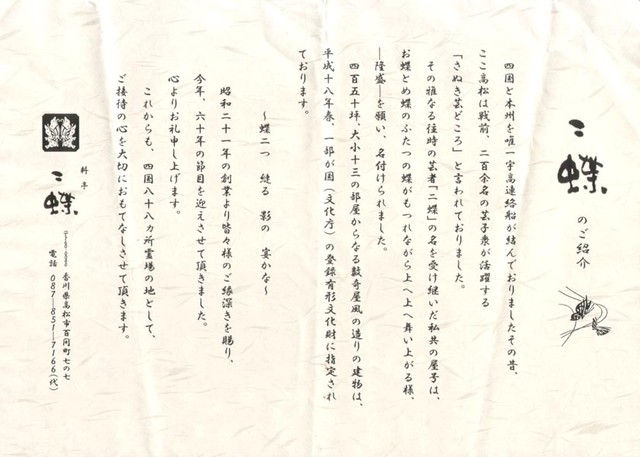 二蝶
のご紹介
四国と本州を唯一宇高連絡船が結んでおりましたその昔、
ここ高松は戦前、二百余名の芸子衆が活躍する
「さぬき芸どころ」と言われておりました。
その雅なる往時の芸者「二蝶」の名を受け継いだ私共の屋号は、
お蝶とめ蝶のふたつの蝶がもつれながら上へ上へ舞い上がる様、
―隆盛―を願い、名付けられました。
四百五十坪、大小十三の部屋からなる数奇屋風の造りの建物は、
平成十八年春、一部が国(文化庁)の登録有形文化財に指定され
ております。
～蝶二つ 縫る 影の 宴かな～
昭和二十一年の創業より皆々様のご縁深きを賜り、
今年、六十年の節目を迎えさせて頂きました。
心よりお礼申し上げます。
これからも、四国八十八カ所霊場の地として、
ご接待の心を大切におもてなしさせて頂きます。
料亭
二蝶
香川県高松市百間町七の七
電話 087―851―7166(代)